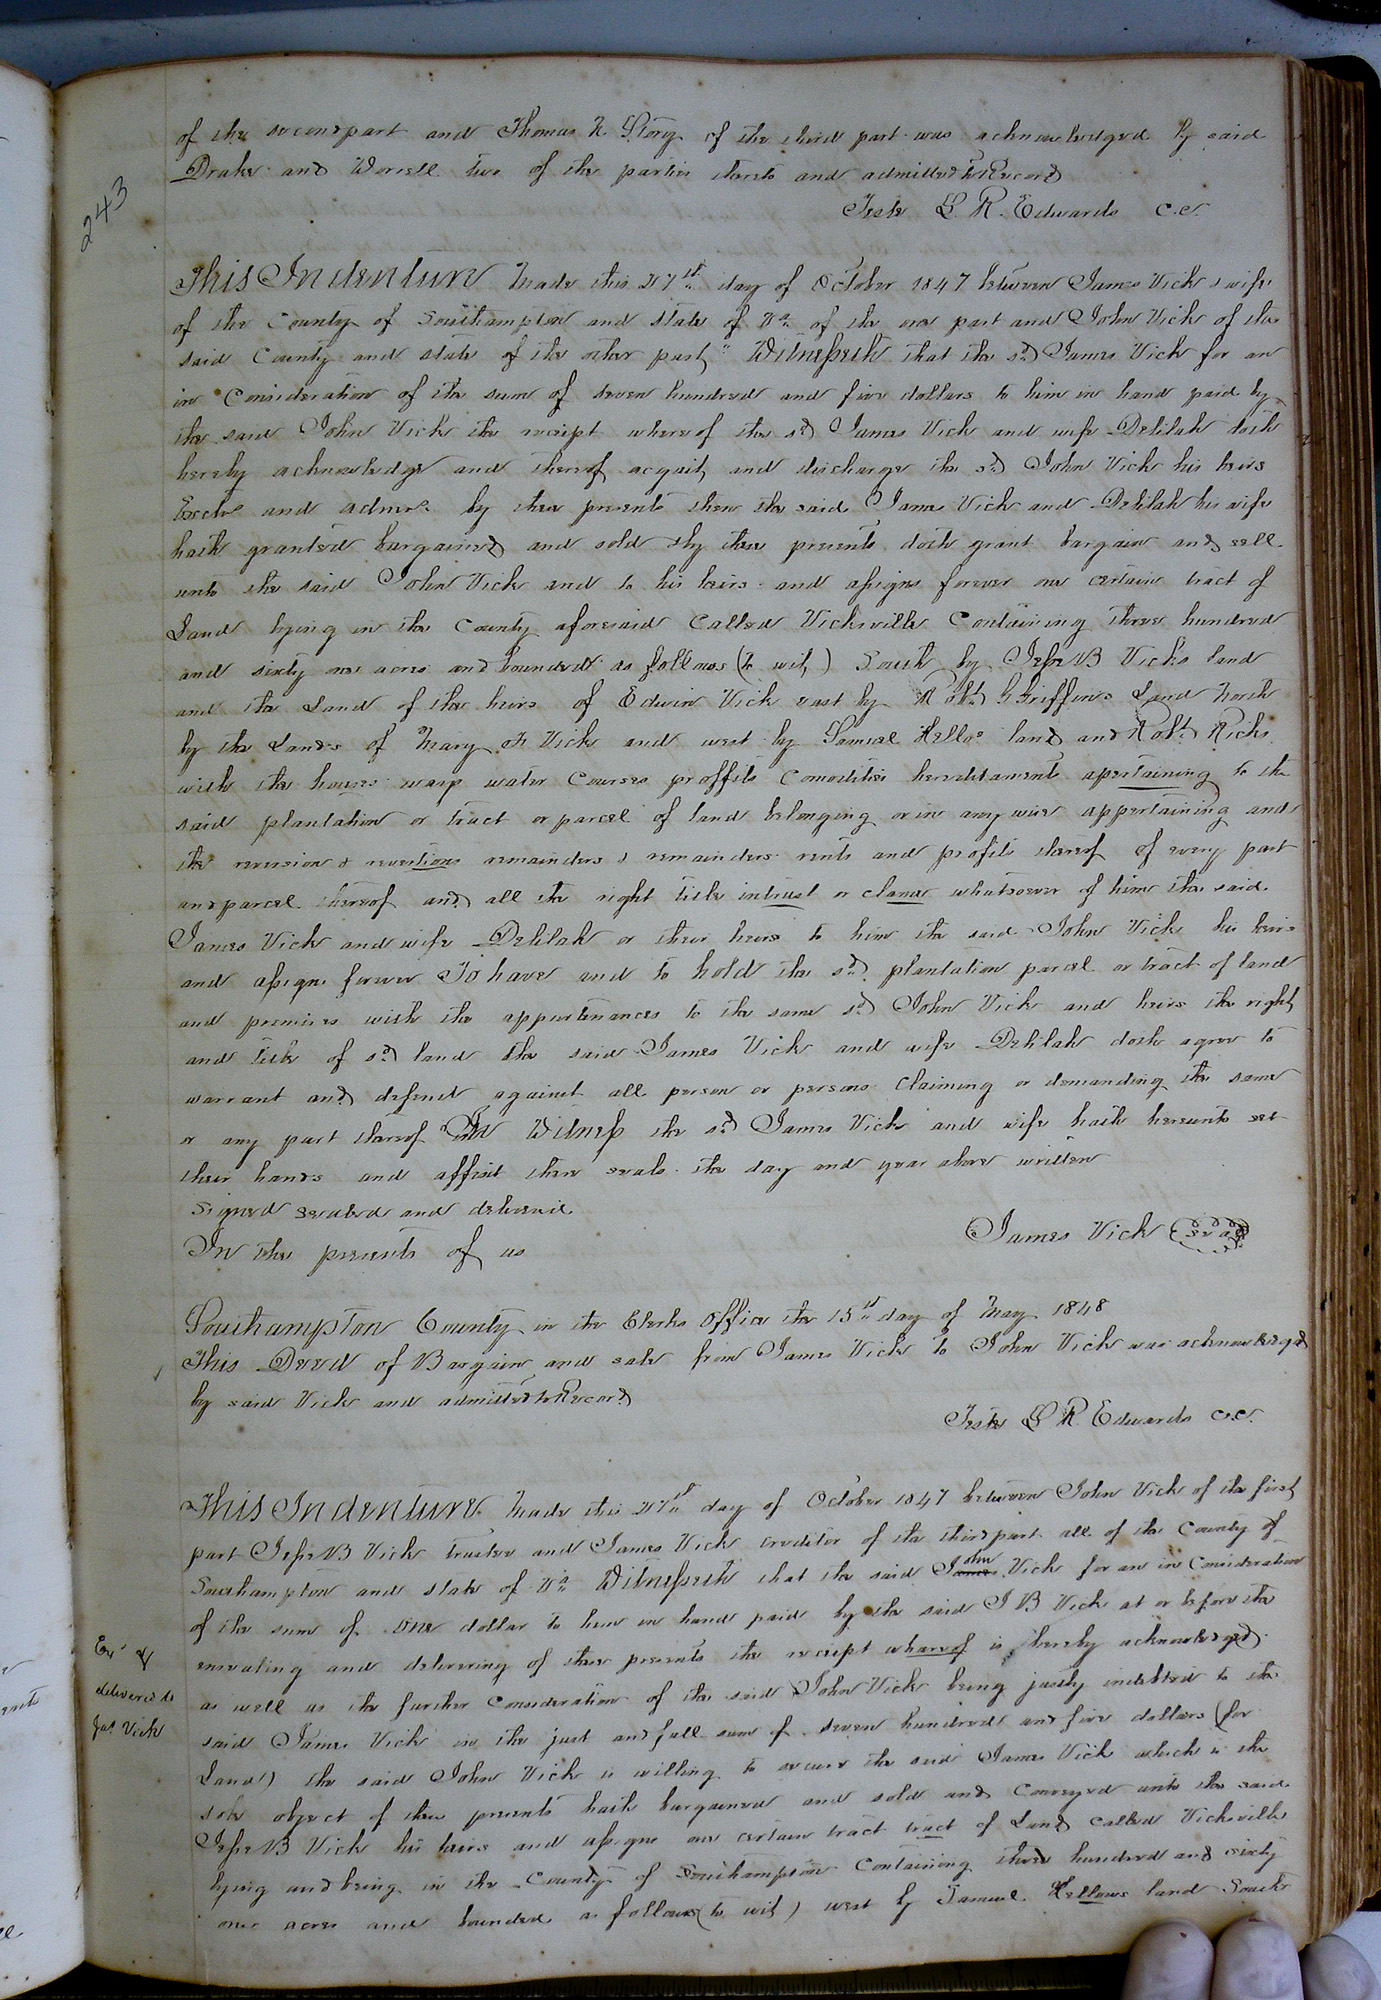 243
of the second part and Thomas N Story of the third part was acknowledged by said
Drake and Worrell two of the parties thereto and admitted to Record
Teste L R. Edwards C.C.
This Indenture Made this 27th day of October 1847 between James Vick & wife
of the County of Southampton and State of Va of the one part and John Vick of the
said County and State of the other part, Witnesseth that the sd James Vick for an
in Consideration of the sum of seven hundred and five dollars to him in hand paid by
the said John Vick the receipt whereof the sd James Vick and wife Delilah doth
hereby acknowledge and thereof acquit, and discharge the sd John Vick his heirs
Exctrs and admrs by these presents then the said James Vick and Delilah his wife
hath granted bargained and sold & by these presents doth grant bargain and sell
unto the said John Vick and to his heirs and assigns forever one certain tract of
Land lying in the County aforesaid Called Vicksville Containing three hundred
and sixty one acres and bounded as follows (to wit,) South by Jesse B Vicks land
and the Land of the heirs of Edwin Vick east by Robt G Griffins Land North
by the Lands of Mary F Vick and west by Samuel Kellos land and Robt Ricks
with the houses ways water Courses proffits Comodities hereditaments apertaining to the
said plantation or tract or parcel of land belonging or in any wise appertaining and
the reversion & revertions remainders & remainders rents and profits thereof of every part
and parcel thereof and all the right title intrust or clame whatsoever of him the said
James Vick and wife Delilah or their heirs to him the said John Vick his heirs
and assigns forever To have and to hold the sd plantation parcel or tract of land
and premises with the appurtenances to the same sd John Vick and heirs the right
and title of sd land the said James Vick and wife Delilah doth agree to
warrant and defend against all person or persons Claiming or demanding the same
or any part thereof In Witness the sd James Vick and wife hath hereunto set
their hands and affixt there seals the day and year above written
Signed Sealed and delivered
In the presents of us
James Vick Seal
Southampton County in the Clerks Office the 15th day of May 1848
This Deed of Bargain and sale from James Vick to John Vick was acknowledged
by said Vick and admitted to Record
Teste L R. Edwards C.C.
This Indenture Made this 27th day of October 1847 between John Vick of the first
part Jesse B Vick trustee and James Vick creditor of the third part all of the County of
Southampton and State of Va Witnesseth that the said John Vick for an in Consideration
of the sum of one dollar to him in hand paid by the said J B Vick at or before the
ensealing and delivering of these presents the receipt whareof is hereby acknowledged
as well as the further Consideration of the said John Vick being justly indebted to the
said James Vick in the just and full sum of seven hundred and five dollars (for
Land) the said John Vick is willing to secure the said James Vick which is the
sole object of these presents hath bargained and sold and Conveyed unto the said
Jesse B Vick his heirs and assigns one certain tract tract of Land Called Vicksville
lying and being in the County of Southampton Containing three hundred and sixty
one acres and bounded as follows (to wit) west by Samuel Kellows land South
Exd &
delivered to
Jas Vick